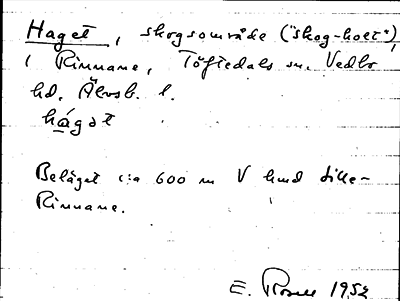 Haget, skogsområde ("skog-holt")
i Rinnane, Töftedals sn. Vedbo
hd. Älvsb. l.
hágat
Beläget c:a 600 m V
Rinnane.
E. 1952